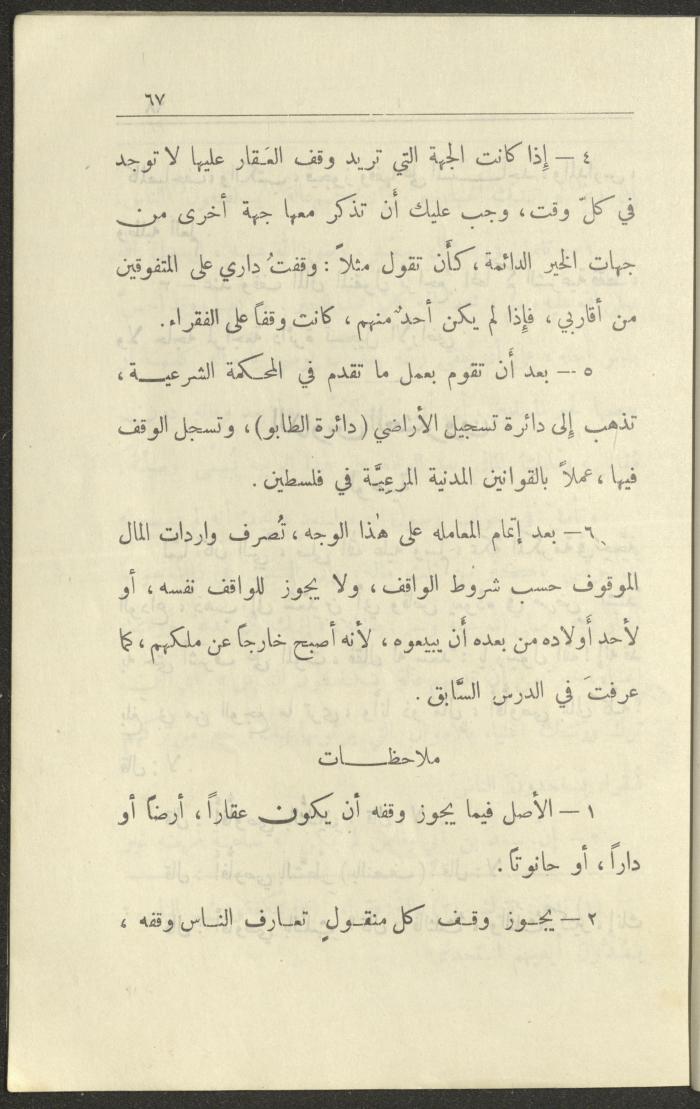 ٦٧
٤ — إِذا كانت الجهة التي تريد وقف العَقار عليها لا توجد
في كلّ وقت، وجب عليك أَن تذكر معها جهة أخرى من
جهات الخير الدائمة، كأَن تقول مثلاً: وقفتُ داري على المتفوقين
من أقاربي، فإِذا لم يكن أحدٌ منهم، كانت وقفاً على الفقراء.
٥ — بعد أَن تقوم بعمل ما تقدم في المحكمة الشرعيـــة،
تذهب إِلى دائرة تسجيل الأراضي (دائرة الطابو)، وتسجل الوقف
فيها، عملاً بالقوانين المدنية المرعِيَّة في فلسطين.
٦ — بعد إتمام المعامله على هٰذا الوجه، تُصرف واردات المال
الموقوف حسب شروط الواقف، ولا يجوز للواقف نفسه، أو
لأحد أَولاده من بعده أَن يبيعوه، لأنه أصبح خارجاً عن ملكهم، كما
عرفتَ في الدرس السَّابق.
ملاحظـــات
١ — الأصل فيما يجوز وقفه أن يكون عقاراً، أرضاً أو
داراً، أو حانوتاً.
٢ — يجـوز وقـف كل منقـولٍ تعـارف النـاس وقفه،